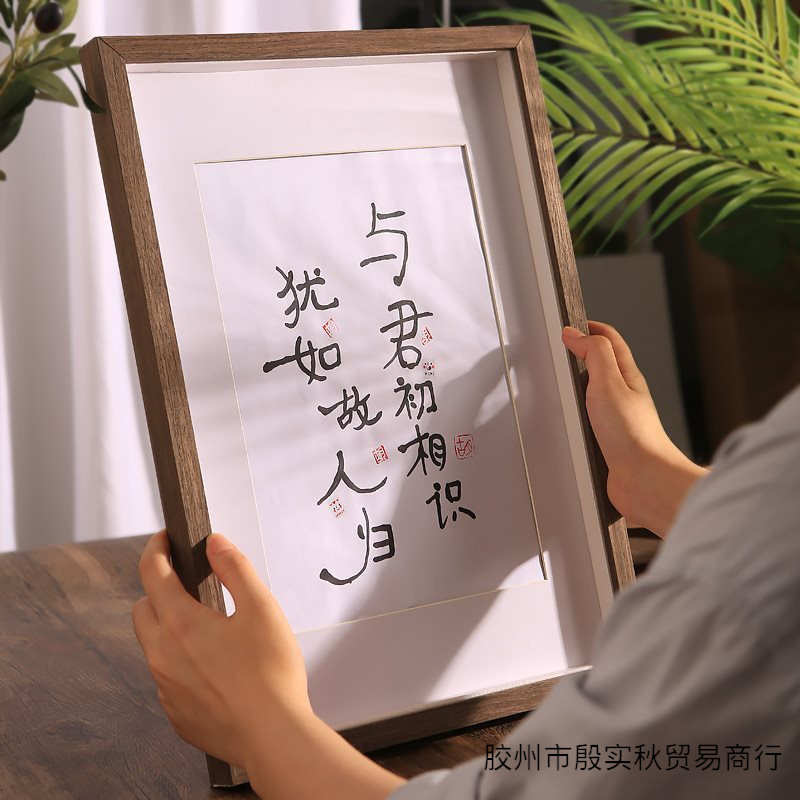 与君初相识
犹如故人归
胶州市殷实秋贸易商行